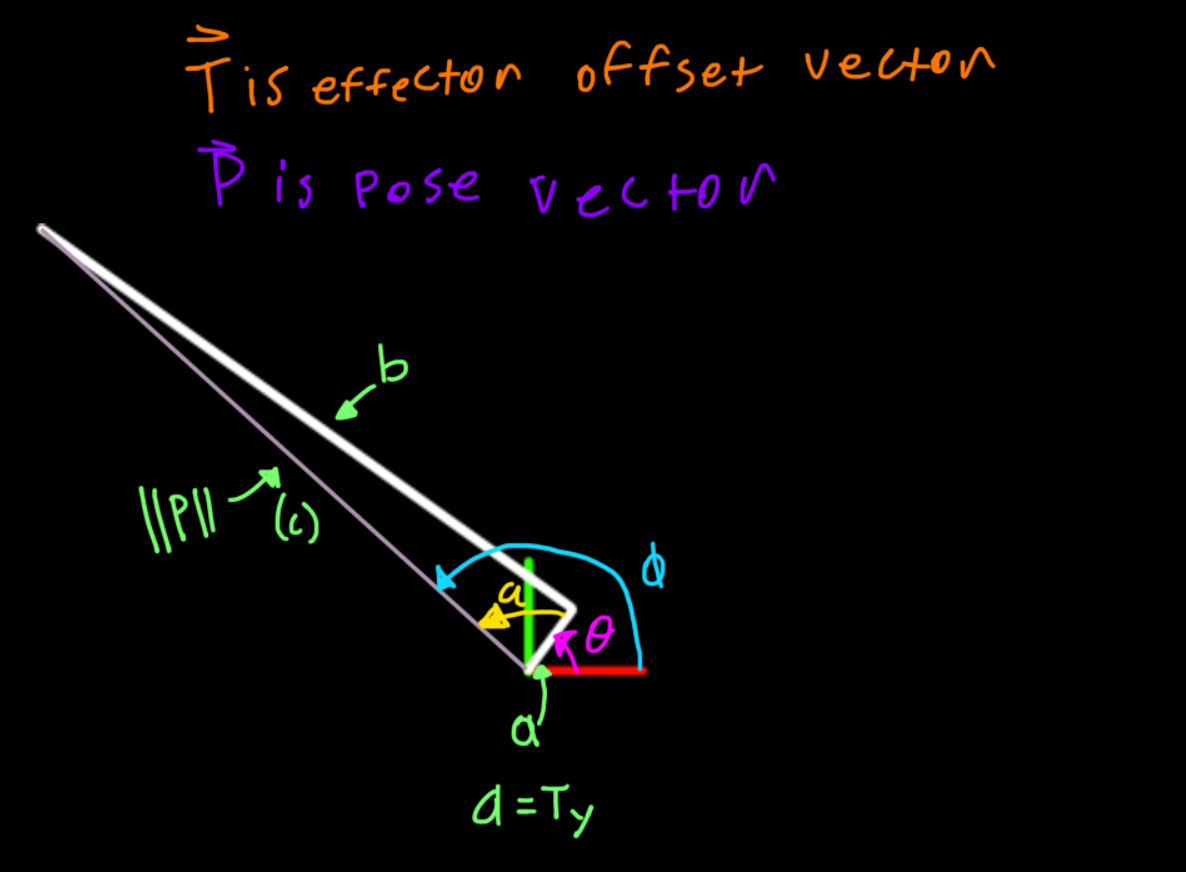 T⃗ is effector offset vector
P⃗ is pose vector
b
||P|| (c)
ϕ
a
θ
a
a = Ty